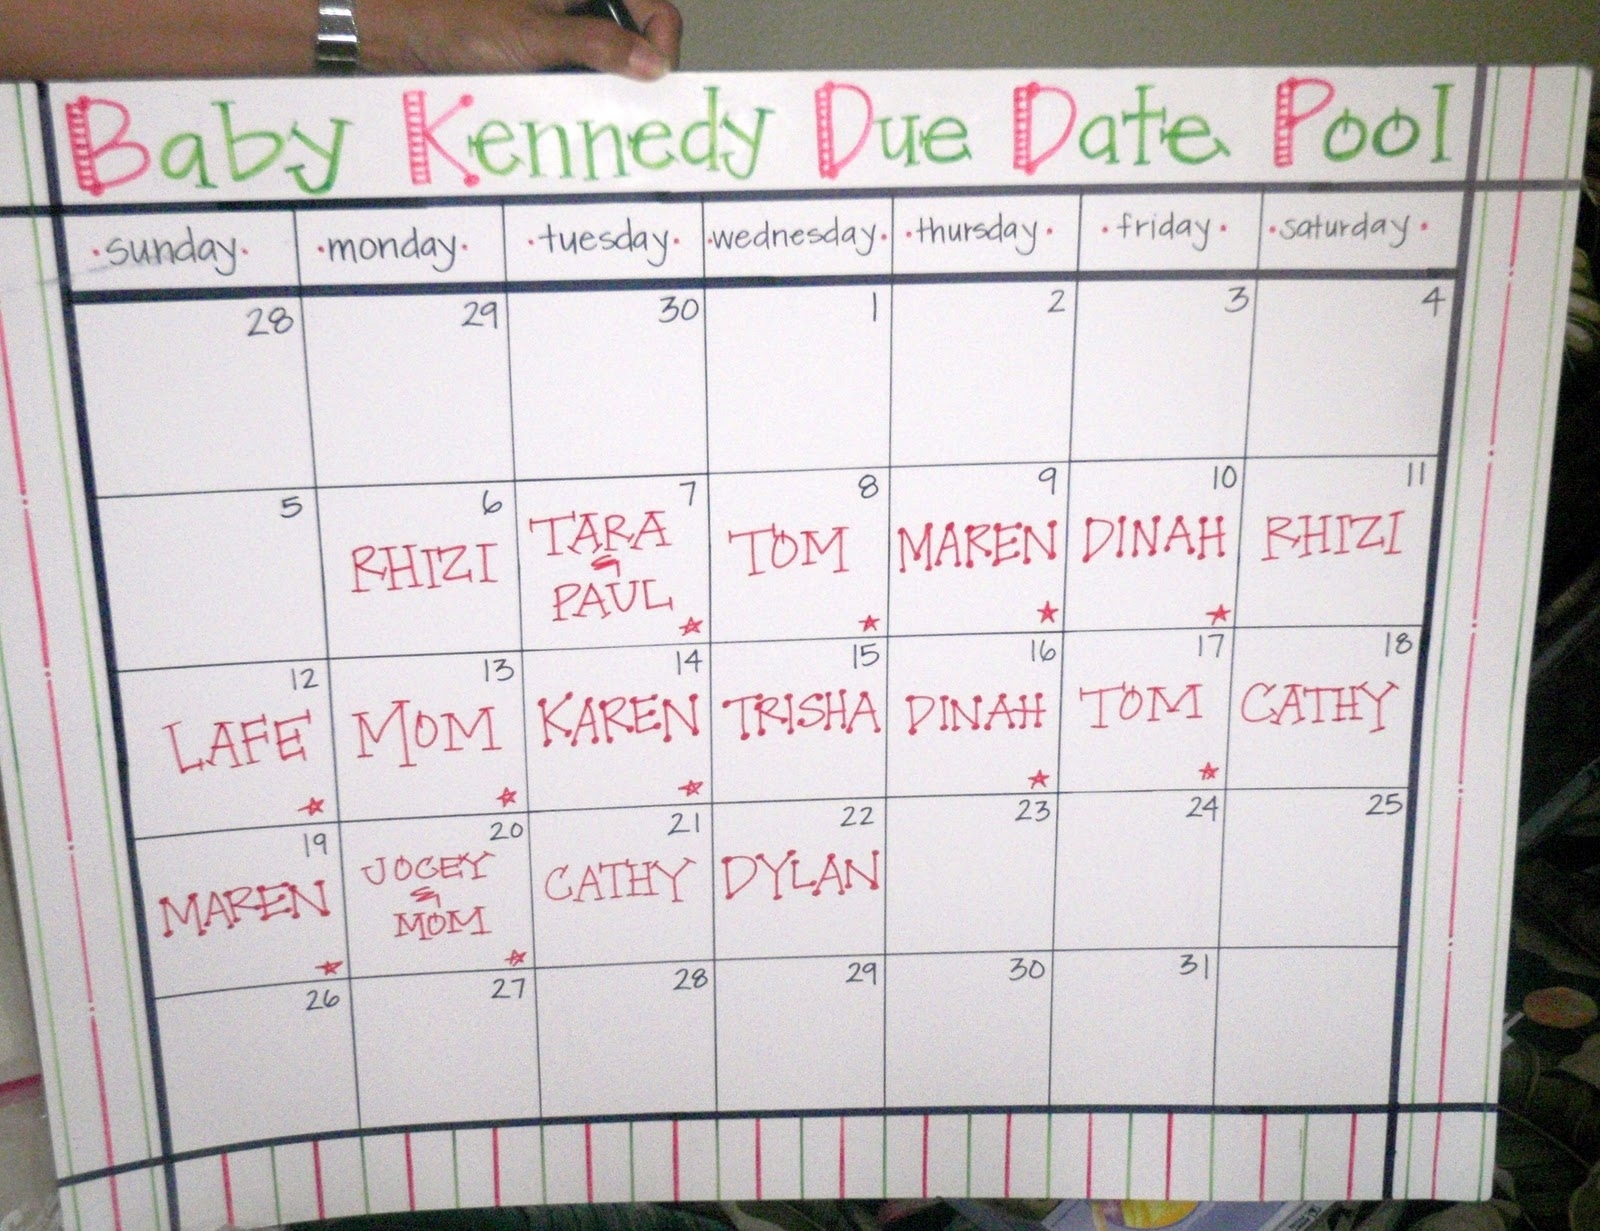 Baby Kennedy Due Date Pool
·sunday· ·monday· ·tuesday· ·wednesday· ·thursday· ·friday· ·saturday·
28 29 30 1 2 3 4
5 6 7 8 9 10 11
RHIZI TARA & PAUL TOM MAREN DINAH RHIZI
12 13 14 15 16 17 18
LAFE MOM KAREN TRISHA DINAH TOM CATHY
19 20 21 22 23 24 25
MAREN JOCEY & MOM CATHY DYLAN
26 27 28 29 30 31